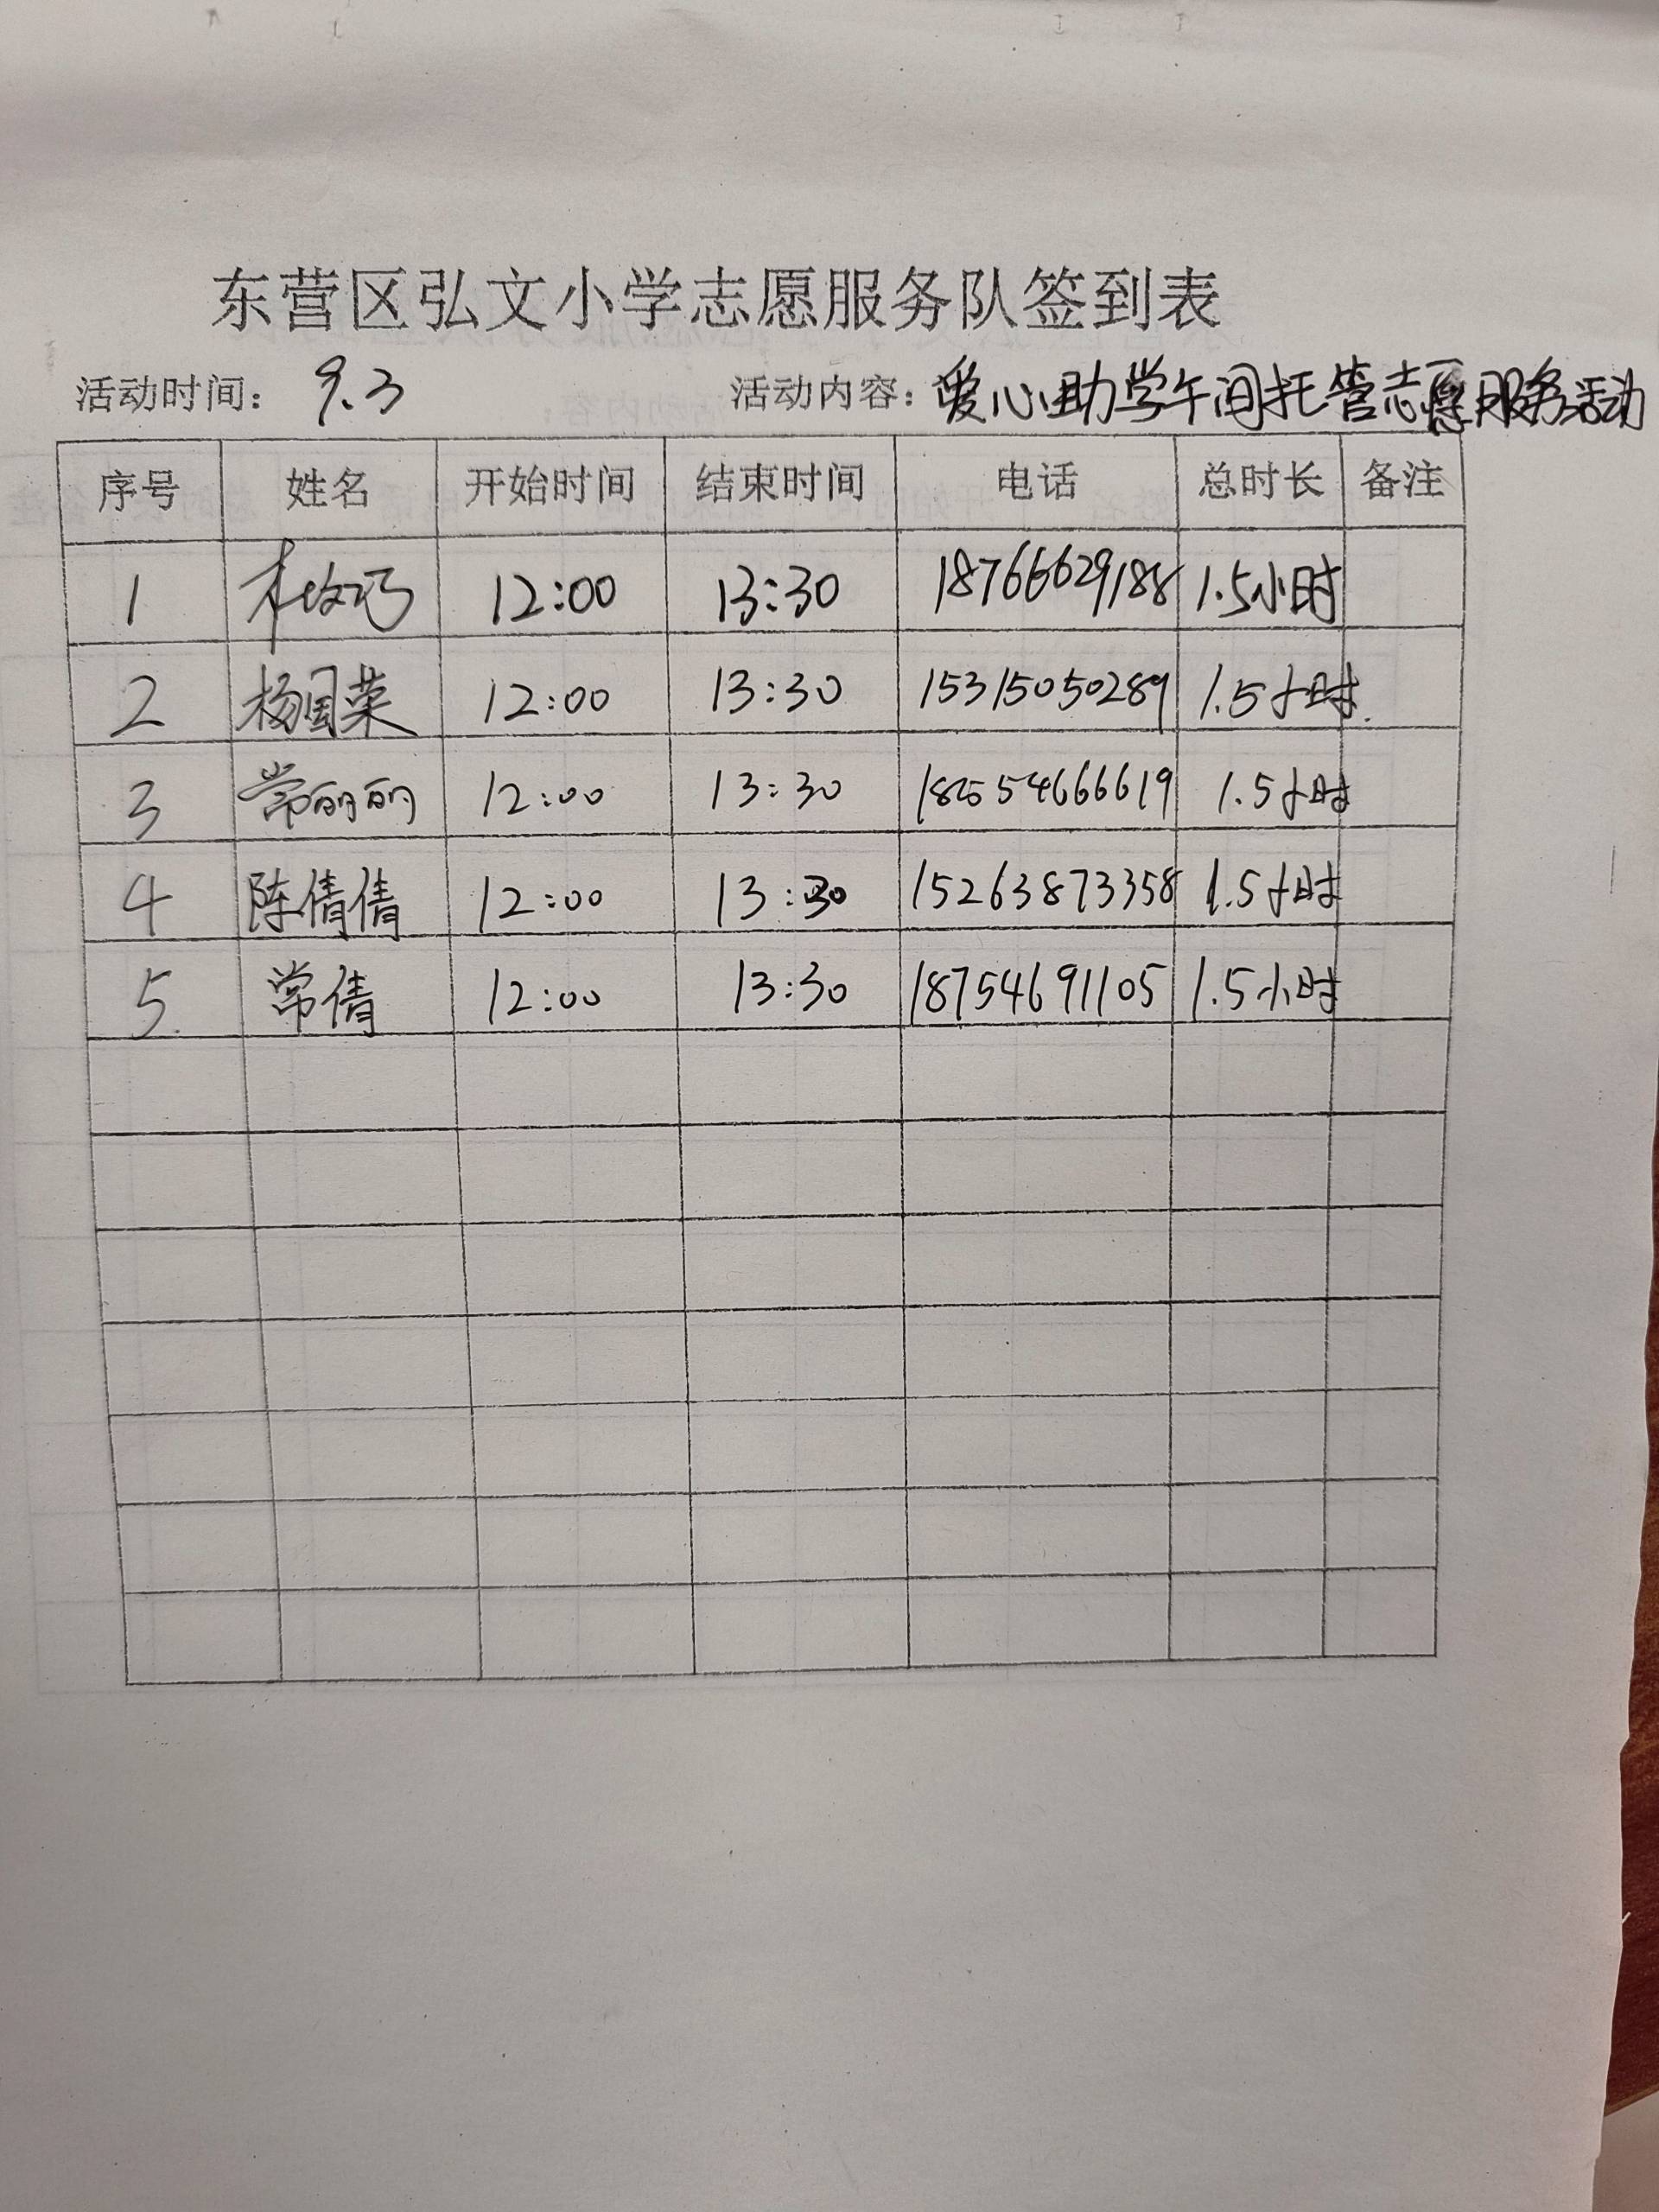 东营区弘文小学志愿服务队签到表
活动时间： 9.3 活动内容：爱心助学午间托管志愿服务活动
序号 姓名 开始时间 结束时间 电话 总时长 备注
1 12:00 13:30 18766629188 1.5小时
2 杨国荣 12:00 13:30 15315050289 1.5小时.
3 常丽丽 12:00 13:30 18554666619 1.5小时
4 陈倩倩 12:00 13:30 15263873358 1.5小时
5. 常倩 12:00 13:30 18754691105 1.5小时